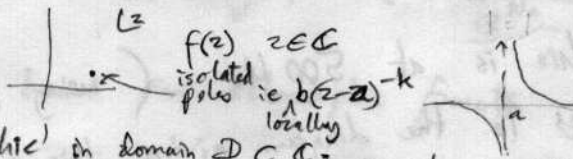 Lz
f(z) z∈ℂ
isolated
poles ie b(z-a)^-k
locally
a
hic' in domain D ⊂ ℂ: